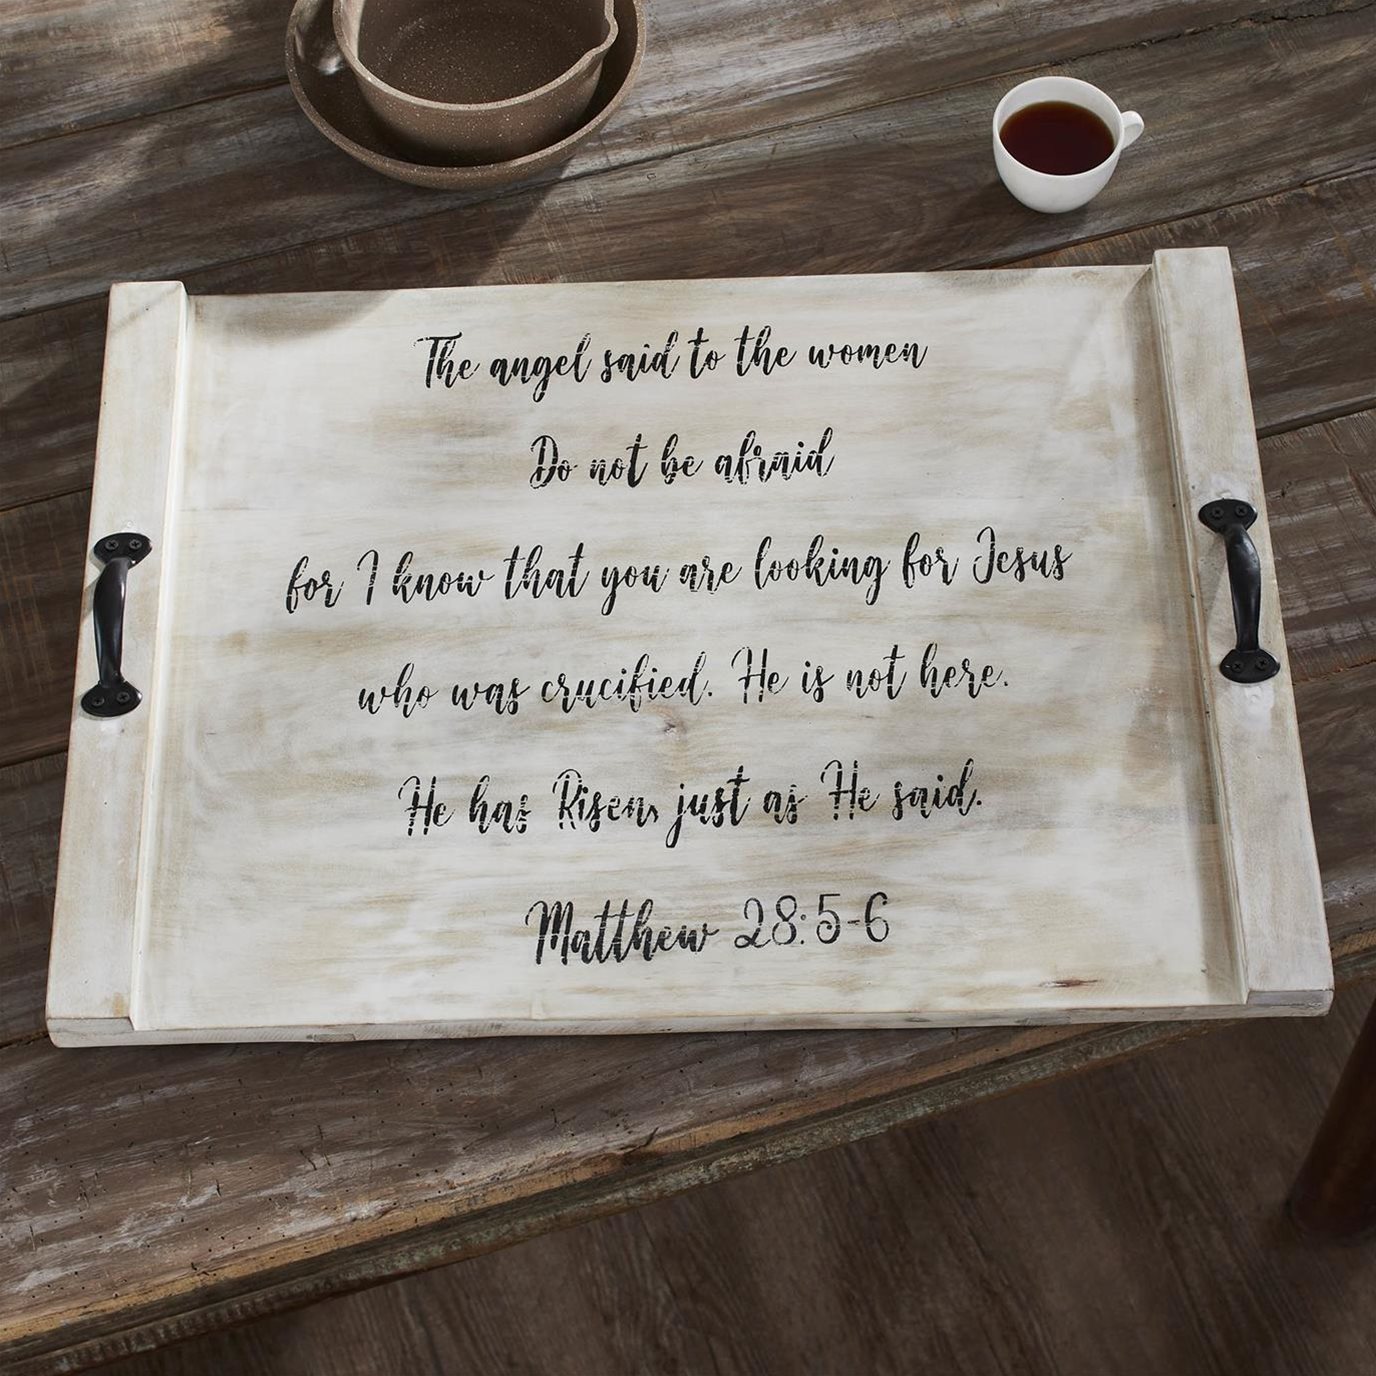 The angel said to the women
Do not be afraid
for I know that you are looking for Jesus
who was crucified. He is not here.
He has Risen, just as He said.
Matthew 28:5-6